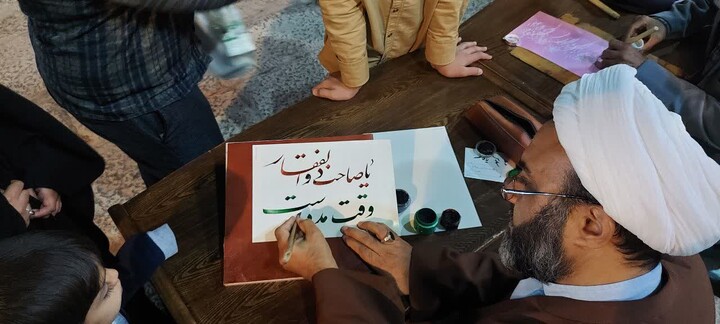 یا صاحب ذوالفقار
وقت مدد است